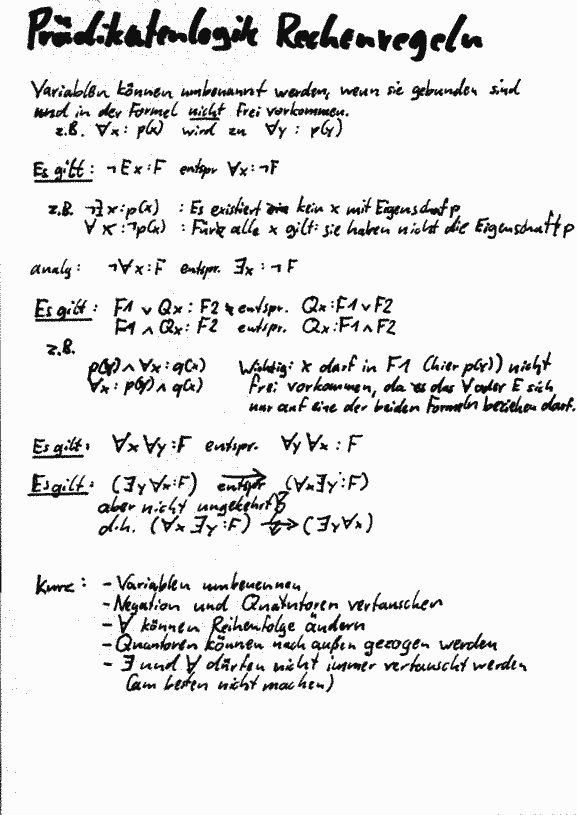 Prädikatenlogik Rechenregeln
Variablen können umbenannt werden, wenn sie gebunden sind
und in der Formel nicht frei vorkommen.
z.B. ∀x : p(x) wird zu ∀y : p(y)
Es gilt : ¬Ex:F entspr ∀x:¬F
z.B. ¬∃x:p(x) : Es existiert kein x mit Eigenschaft p
∀x:¬p(x) : Für alle x gilt: sie haben nicht die Eigenschaft p
analg : ¬∀x:F entspr. ∃x:¬F
Es gilt : F1 ∨ Qx : F2 entspr. Qx:F1∨F2
F1 ∧ Qx: F2 entspr. Qx:F1∧F2
z.B.
p(y)∧∀x:q(x) Wichtig: x darf in F1 (hier p(y)) nicht
∀x: p(y)∧q(x) frei vorkommen, da es das ∀ oder E sich
nur auf eine der beiden Formeln beziehen darf.
Es gilt: ∀x∀y:F entspr. ∀y∀x:F
Es gilt: (∃y∀x:F) entspr → (∀x∃y:F)
aber nicht umgekehrt
d.h. (∀x∃y:F) ↛ (∃y∀x)
Kurz : - Variablen umbenennen
- Negation und Quantoren vertauschen
- ∀ können Reihenfolge ändern
- Quantoren können nach außen gezogen werden
- ∃ und ∀ dürfen nicht immer vertauscht werden
(am besten nicht machen)